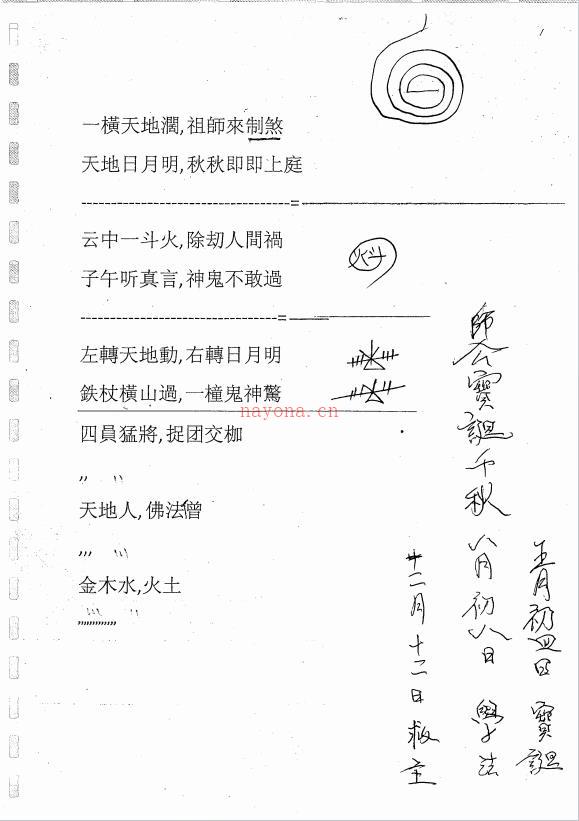 1
一橫天地濶,祖師來制煞
天地日月明,秋秋即即上庭
云中一斗火,除劫人間禍
子午听真言,神鬼不敢過
左轉天地動,右轉日月明
鉄杖橫山過,一橦鬼神驚
nayona.cn
四員猛將,捉团交枷
,, ,,
天地人,佛法僧
,,, ,,,
金木水,火土
師公寶誕千秋
五月初四日 寶誕
八月初八日 學法
十二月十二日救主